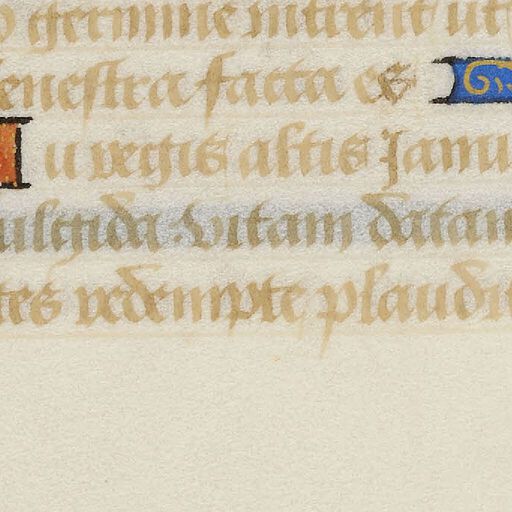 germine intrent ut
fenestra facta es
u regis altis Janu
fulgida vitam datam
tes redempte plaudi